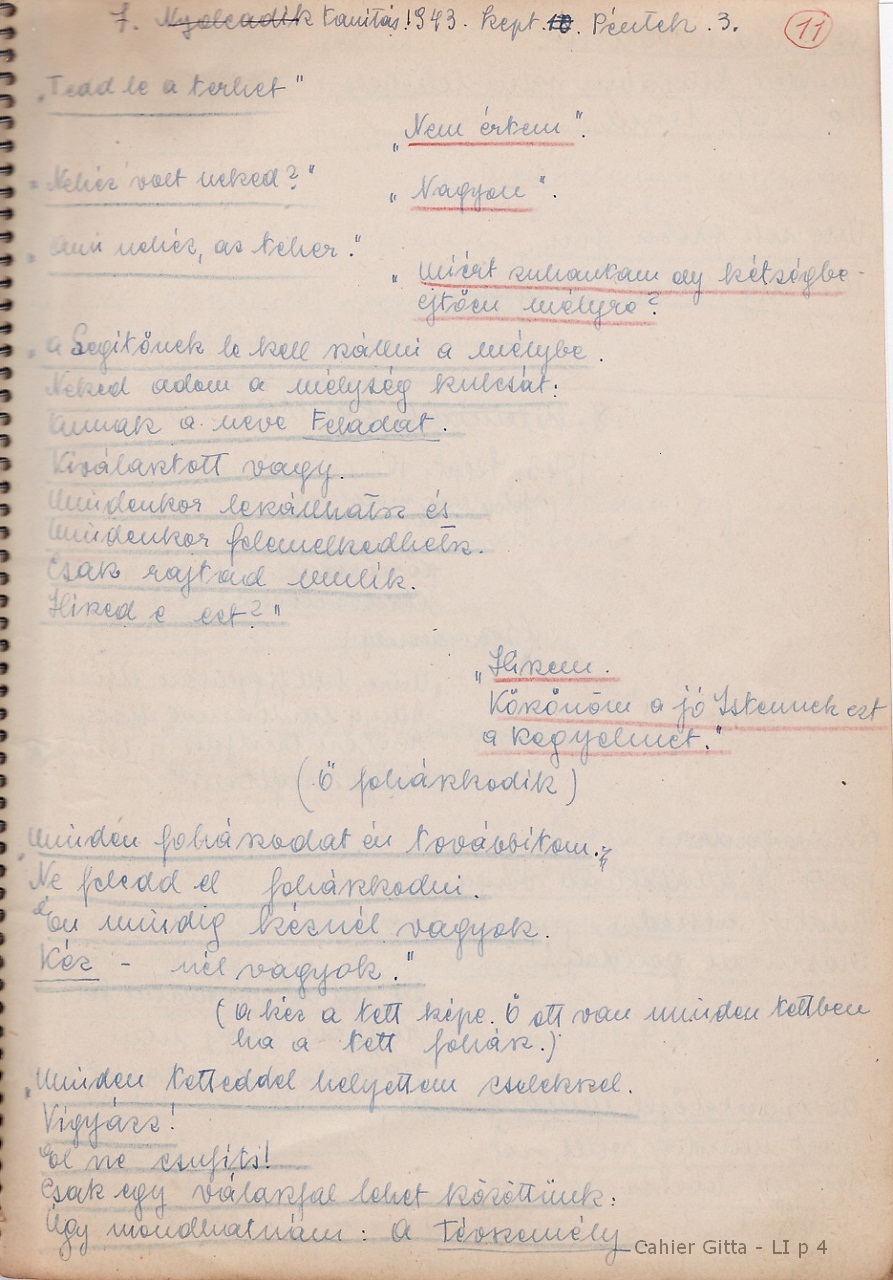 7. Nyolcadik tanitás! 943. Szept. 10. Péntek. 3.
11
„Tedd le a terhet"
„Nem értem".
„Nehéz volt neked?"
„Nagyon".
„Ami nehéz, az teher."
„Miért zuhantam oly kétségbe-
ejtően mélyre?
„A Segitőnek le kell szállni a mélybe.
Neked adom a mélység kulcsát:
Annak a neve Feladat.
Kiválasztott vagy.
Mindenkor leszállhatsz és
Mindenkor felemelkedhetsz.
Csak rajtad mulik.
Hiszed e ezt?"
„Hiszem.
Köszönöm a jó Istennek ezt
a kegyelmet."
(Ő fohászkodik)
„Minden fohászodat én továbbitom.
Ne feledd el fohászkodni.
Én mindig kéznél vagyok.
Kéz - nél vagyok."
(A kéz a tett képe. Ő ott van minden tettben
ha a tett fohász.)
„Minden tetteddel helyettem cselekszel.
Vigyázz!
El ne csufits!
Csak egy válaszfal lehet közöttünk:
Úgy mondhatnám: A Tévszemély
Cahier Gitta - LI p 4